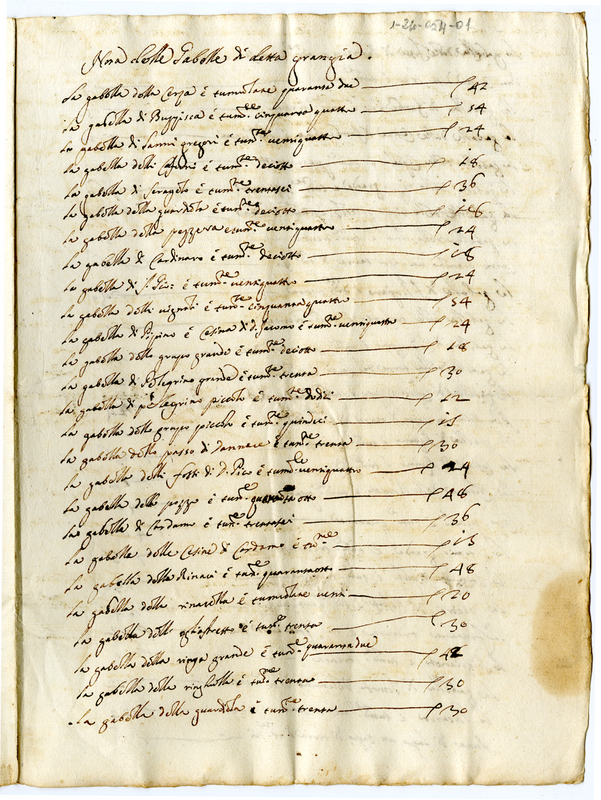 1-24-054-01
Nota delle Gabelle di detta grangia.
La gabella della Cerza è tumulane quaranta due 42
La gabella di Buffisca è tum.ne cinquanta quattro 54
La gabella di Santi gregori è tum.ne ventiquattro 24
La gabella delli è tum.ne deciotto 18
La gabella di è tum.ne trentasei 36
La gabella della guardiola è tum.ne deciotto 18
La gabella della è tum.ne ventiquattro 24
La gabella di è tum.ne deciotto 18
La gabella di è tum.ne ventiquattro 24
La gabella delli vignali è tum.ne cinquanta quattro 54
La gabella di è Cesina di è tum.ne ventiquattro 24
La gabella dello grupo grande è tum.ne deciotto 18
La gabella di Pellegrino grande è tum.ne trenta 30
La gabella di pellegrino piccolo è tum.ne dodici 12
La gabella dello grupo piccolo è tum.ne quindici 15
La gabella dello passo di è tum.ne trenta 30
La gabella delli fossi di è tum.ne ventiquattro 24
La gabella dello pozzo è tum.ne quaranta otto 48
La gabella di Cardamo è tum.ne trentasei 36
La gabella delle Cesine di Cardamo è tu.ne 15
La gabella della è tum.ne quarantaotto 48
La gabella della rinacella è tumulane venti 20
La gabella dello è tum.ne trenta 30
La gabella della ringa grande è tum.ne quaranta due 42
La gabella della è tum.ne trenta 30
La gabella della guardiola è tum.ne trenta 30